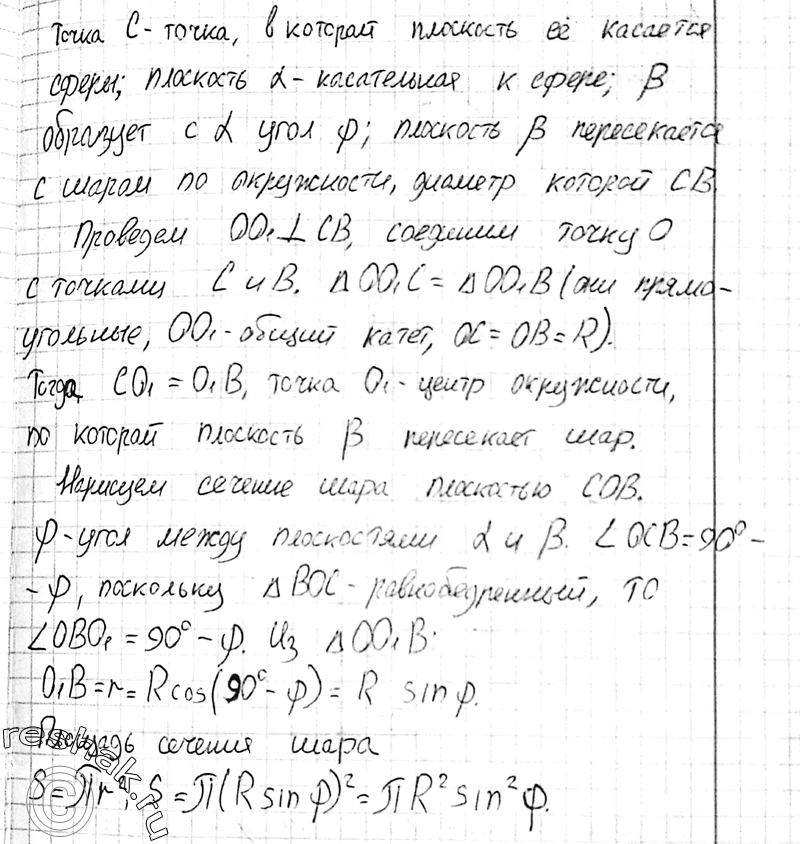 Точка С - точка, в которой плоскость её касается
сферы; плоскость α - касательная к сфере; β
образует с α угол φ; плоскость β пересекается
с шаром по окружности, диаметр которой CB.
Проведем OO₁⊥CB, соединим точку O
с точками C и B. △OO₁C = △OO₁B (они прямо-
угольные, OO₁ - общий катет, OC = OB = R).
Тогда CO₁ = O₁B, точка O₁ - центр окружности,
по которой плоскость β пересекает шар.
Нарисуем сечение шара плоскостью COB.
φ - угол между плоскостями α и β. ∠OCB = 90° -
- φ, поскольку △BOC - равнобедренный, то
∠OBO₁ = 90° - φ. Из △OO₁B:
O₁B = r = R cos(90° - φ) = R sin φ.
Площадь сечения шара
S = πr²; S = π(R sin φ)² = πR² sin² φ.
reshak.ru
©